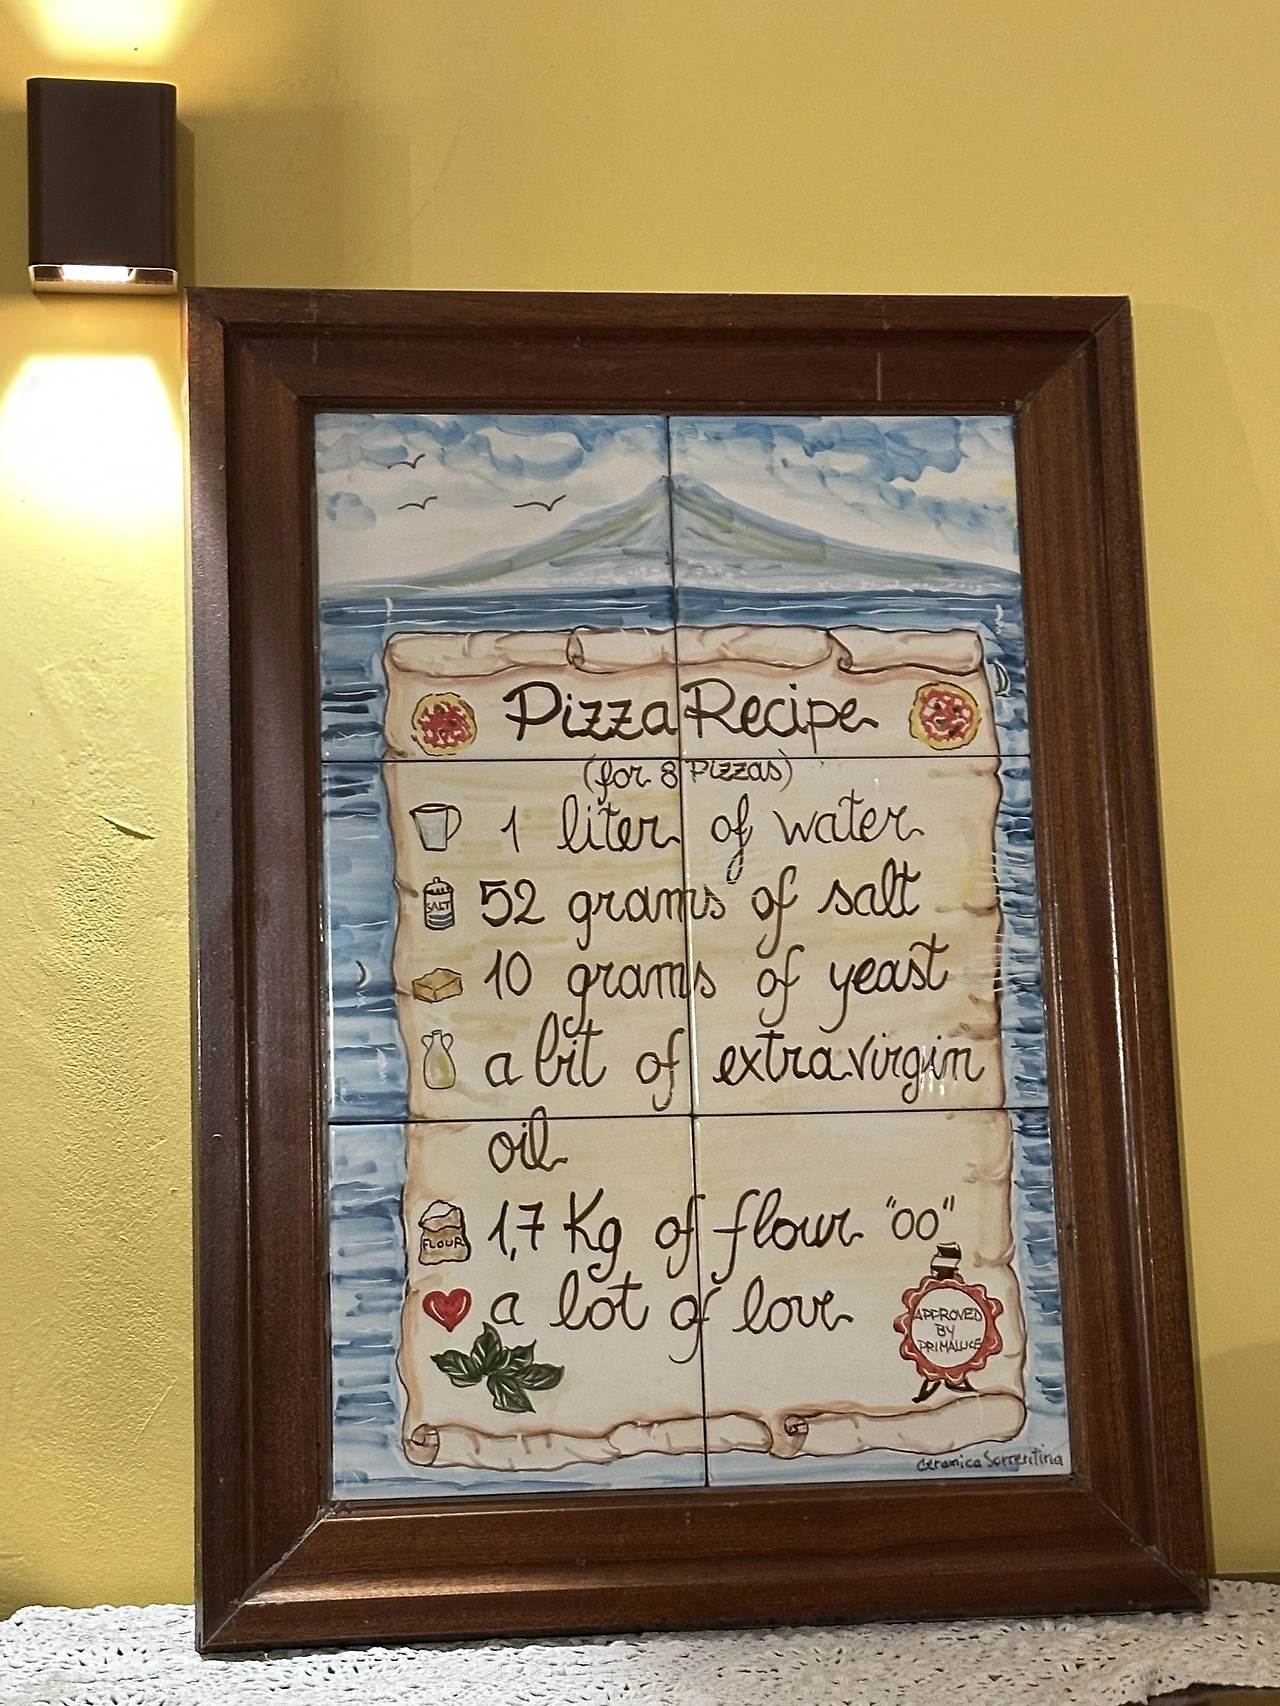 Pizza Recipe
(for 8 Pizzas)
1 liter of water
SALT
52 grams of salt
10 grams of yeast
a bit of extravirgin
oil
FLOUR
1,7 Kg of flour "00"
a lot of love
APPROVED
BY
PRIMALUCE
Ceramica Sorrentina